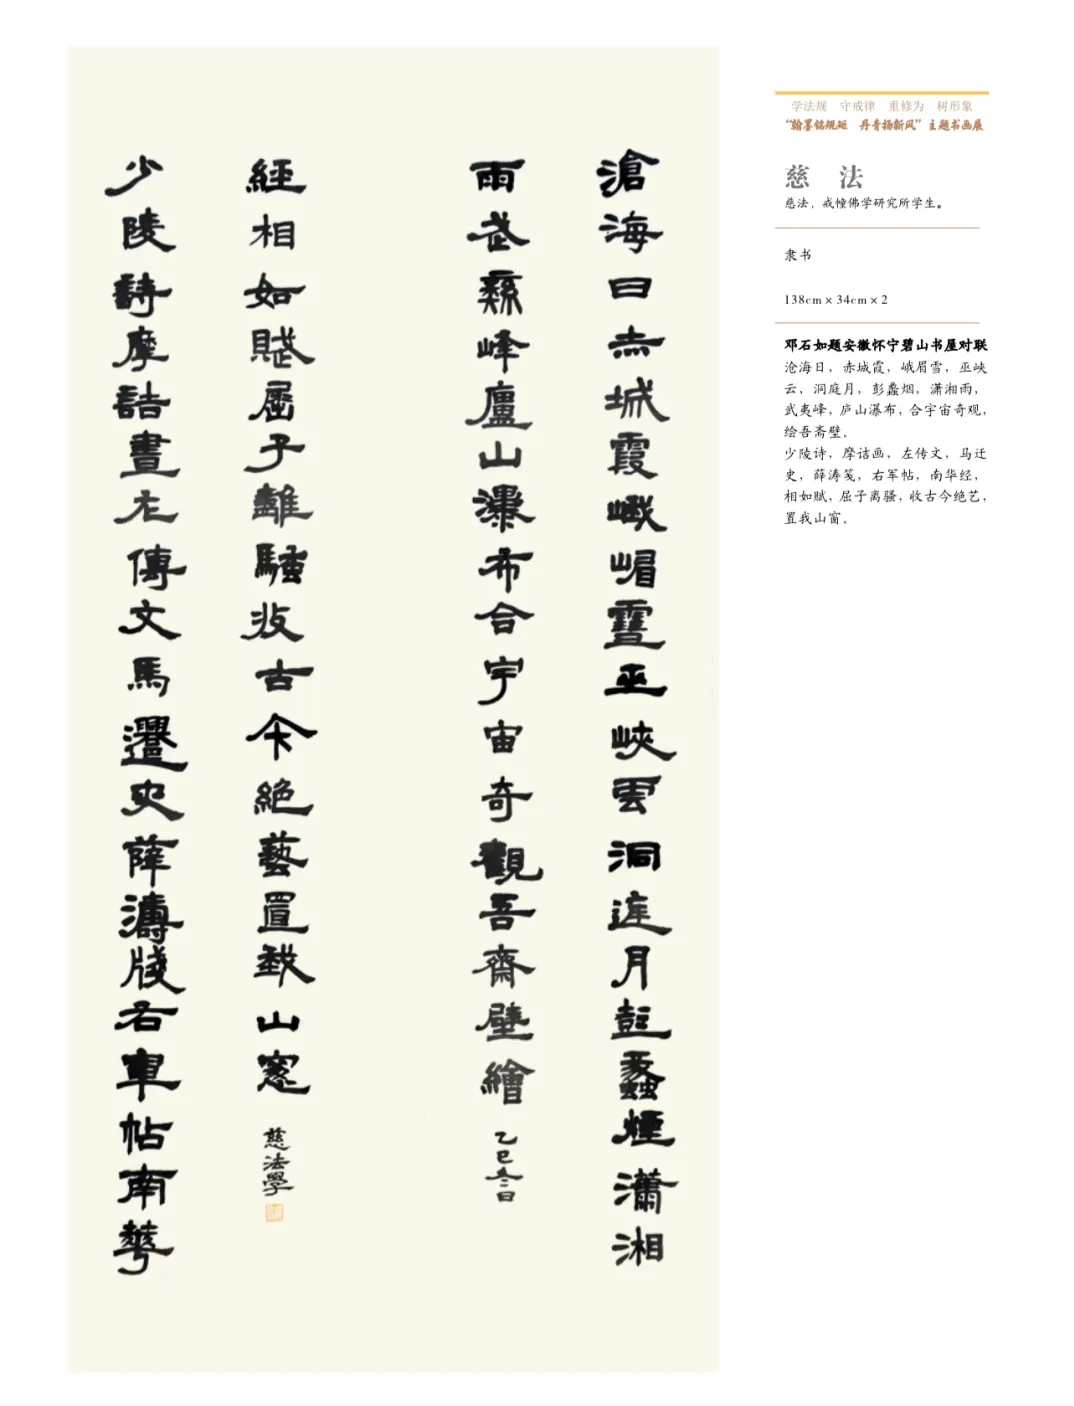 滄海日赤城霞峨嵋雪巫峽雲洞庭月彭蠡煙瀟湘
雨武彞峰廬山瀑布合宇宙奇觀吾齋壁繪
乙巳冬日
少陵詩摩詰畫左傳文馬遷史薛濤牋右軍帖南華
經相如賦屈子離騷收古今絕藝置我山窗
慈法學
学法规 守戒律 重修为 树形象
“翰墨铭规矩 丹青扬新风”主题书画展
慈 法
慈法，戒幢佛学研究所学生。
隶书
138cm × 34cm × 2
邓石如题安徽怀宁碧山书屋对联
沧海日，赤城霞，峨眉雪，巫峡
云，洞庭月，彭蠡烟，潇湘雨，
武夷峰，庐山瀑布，合宇宙奇观，
绘吾斋壁。
少陵诗，摩诘画，左传文，马迁
史，薛涛笺，右军帖，南华经，
相如赋，屈子离骚，收古今绝艺，
置我山窗。